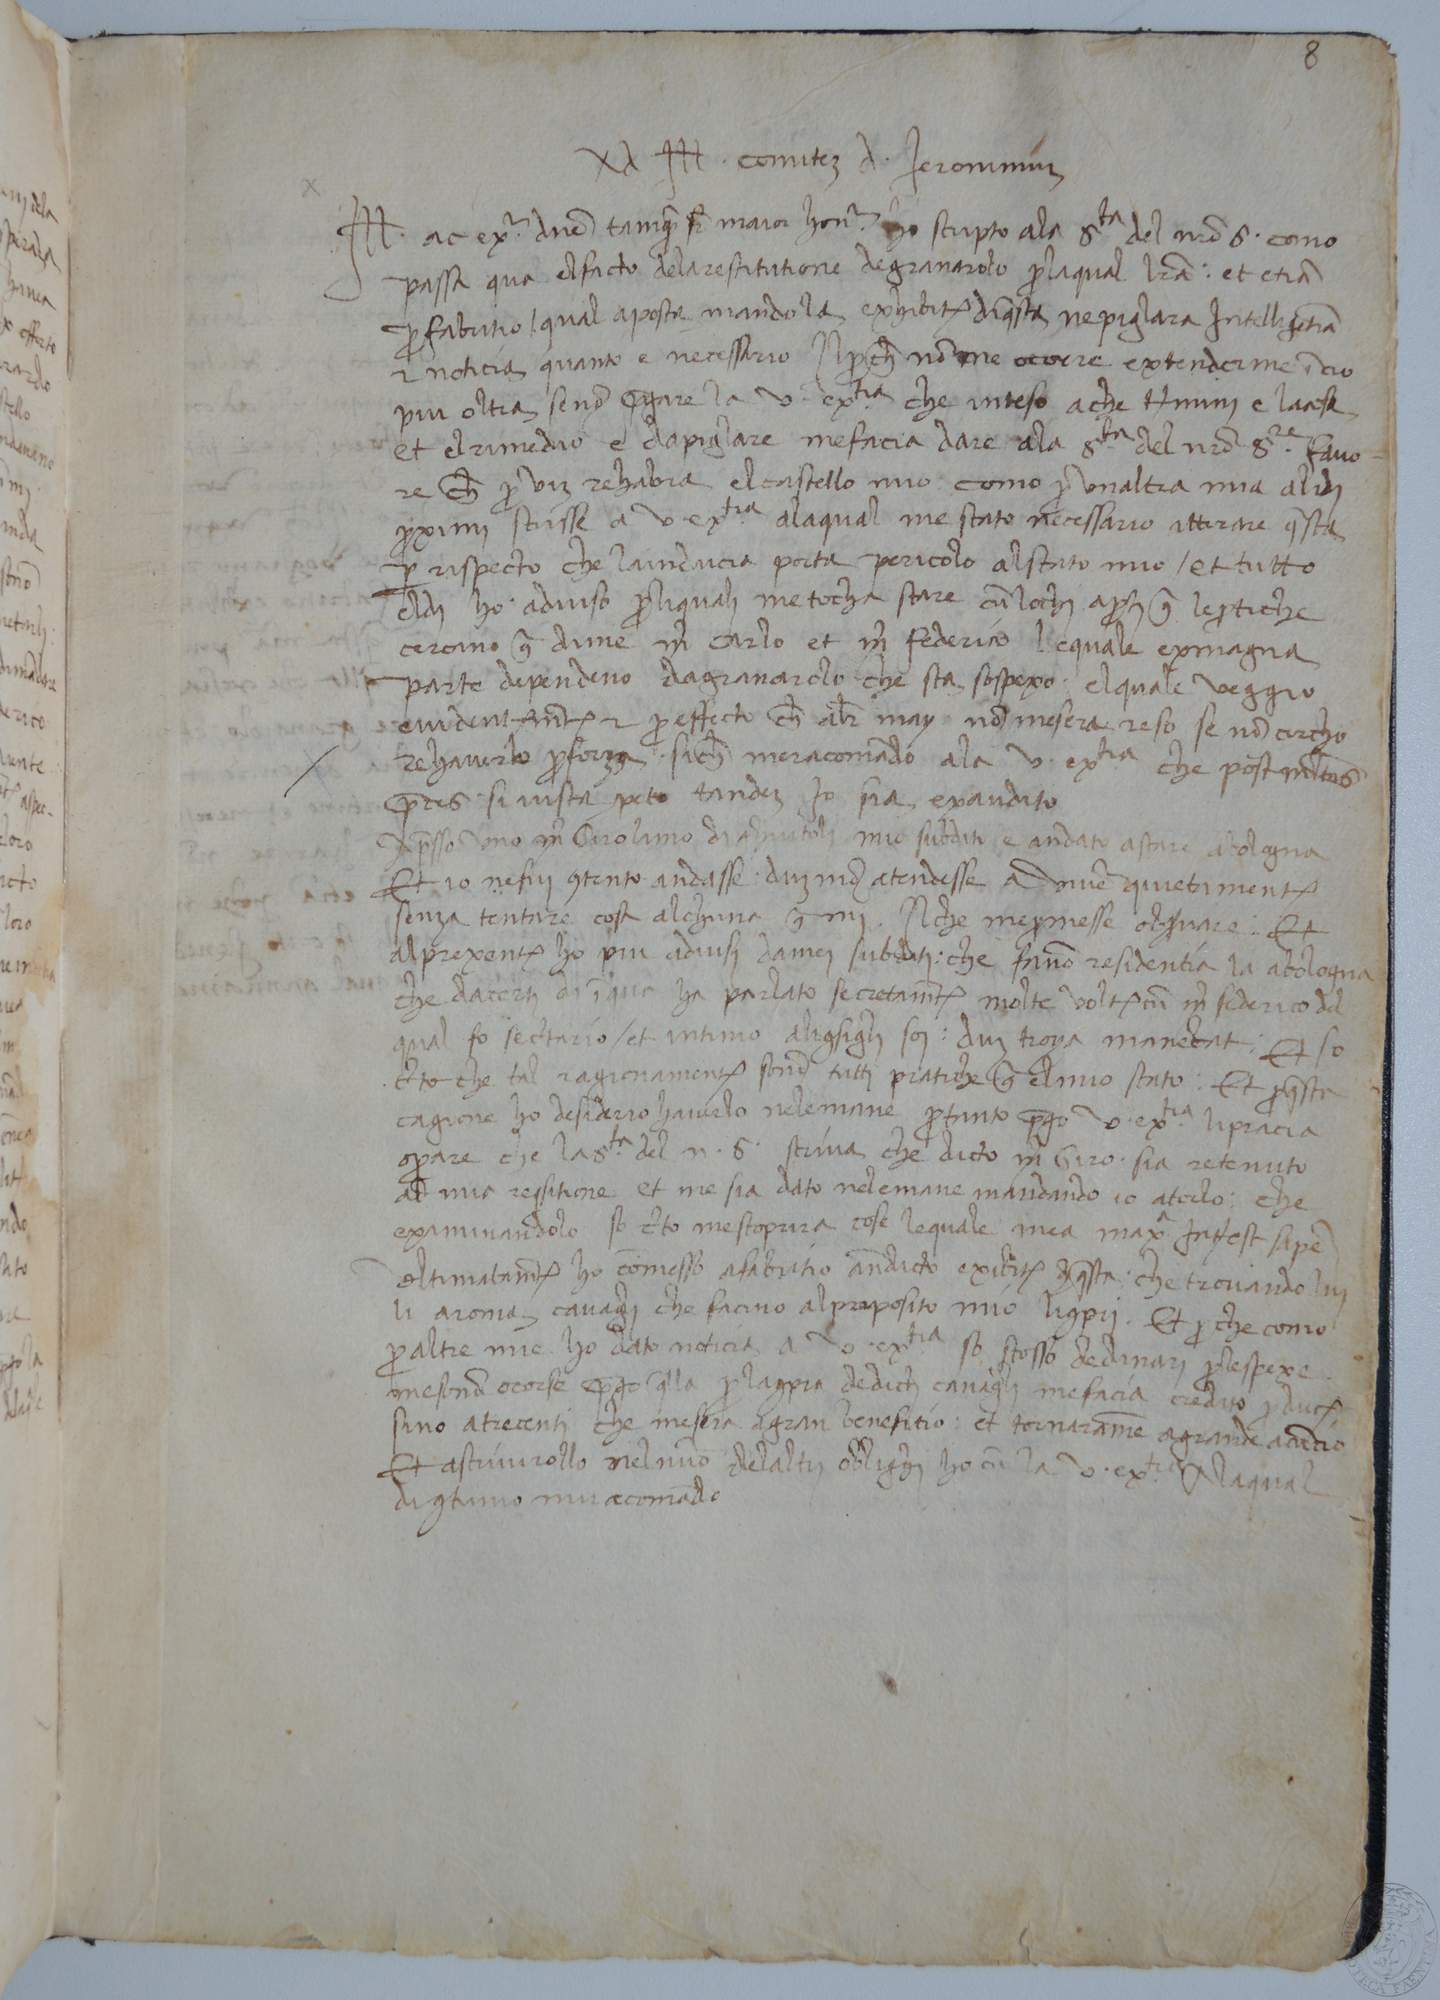 8
Ad Ill. comitem d. Jeronimum
Ill. ac ex.r dne tamq̃ fr maior hon.r ho scripto ala S.ta del nrõ S. como
passa qua el facto dela restitutione de granarolo p laqual lrã: et etiã
p fabritio / qual aposta mando la exhibitr dq̃sta ne piglara Intelligẽtia
et noticia quanto e necessario Il pch nõ me ocorre extenderme ĩ cio
piu oltra senõ pgare la v. ex.tia che inteso a che tmini e la cosa
et el rimedio e da piglare me facia dare ala S.ta del nrõ S.re favo-
re ch p via rehabia el castello mio como p unaltra mia ali dì
pximi scrisse a v. ex.tia alaqual me stato necessario itterare q̃sta
p rispecto che la inducia porta pericolo al stato mio / et tutto
el dì ho adviso p li quali me tocha stare cũ lochi apti q̃ le ptiche
cercano q̃ di me m̃ Carlo et m̃ Federico le quale ex magna
parte dependeno da granarolo che sta sospexo: el quale veggio
evidentemẽtr et p effecto ch altr may nõ me sera reso se nõ cercho
rehaverlo p forza. sich me racomãdo ala v. ex.tia che post multas
p̃ces si iusta peto tandem Io sia exaudito
Apsso uno m̃ Girolimo di mio subdito e andato a stare a bologna
Et io ne fui ctento andasse. dum mõ atendesse a vivere quietamentr
senza tentare cosa alchuna q̃ mi. Il che me pmesse obsvare: Et
al prexentr ho piu advisi da mei subditi: che fanno residentia la a bologna
che da certi di in qua ha parlato secretamtr molte voltr cũ m̃ federico del
qual fo sectario / et intimo ali csigli soi: dum troya manebat: Et so
certo che tal ragionamentr sonõ tutti pratiche q̃ el mio stato: Et p q̃sta
cagione ho desiderio haverlo nele mane p tanto pgo v. ex.tia li piacia
oprare che la S.ta del n. S. scriva che dicto m̃ Giro. sia retenuto
ad mia ressitione et me sia dato nele mane mandando io a torlo: che
examinandolo so certo me scoprira cose lequale mea max.a Intrest sapẽ
Oltimatamtr ho comesso a fabritio andicto exibitr dq̃sta: che trovando lui
li a roma cavagli che facino al preposito mio li cpri. Et p che como
p altre mie ho dato noticia a v. ex.tia so scosso de dinari p le spexe
me sonõ ocorse pgo q̃lla p la cpra de dicti cavagli me facia credito p duct
sino a trecenti che me sera a gran benefitio: et tornaramẽ a grande aiuto
Et ascrivirollo nel nũo del altri oblighi ho cũ la v. ex.tia Alaqual
di ctinuo mi racomãdo